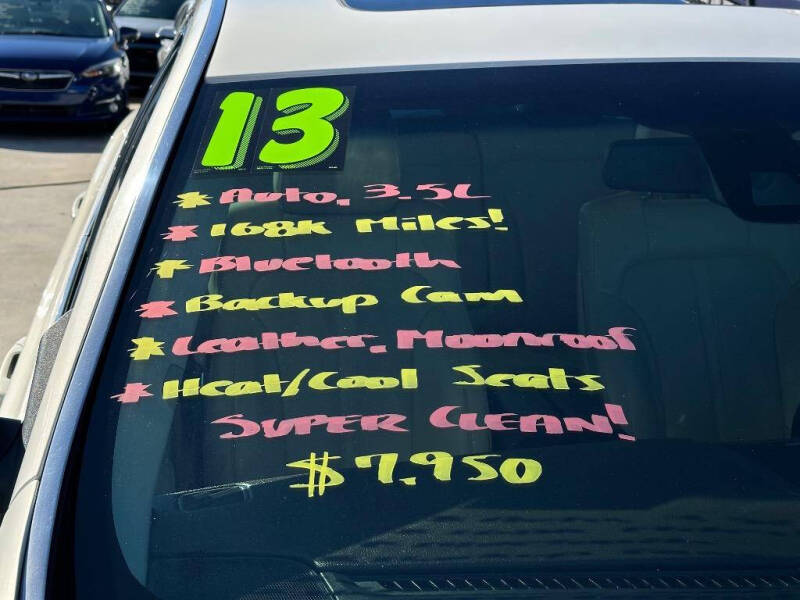 13
* Auto, 3.5L
* 168k Miles!
* Bluetooth
* Backup Cam
* Leather, Moonroof
* Heat/Cool Seats
SUPER CLEAN!
$7,950